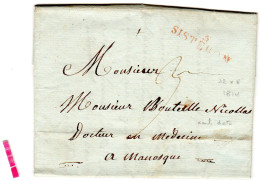 SISTERON
Monsieur
Monsieur Bouteille Nicollas
Docteur en Medecine
a Manosque